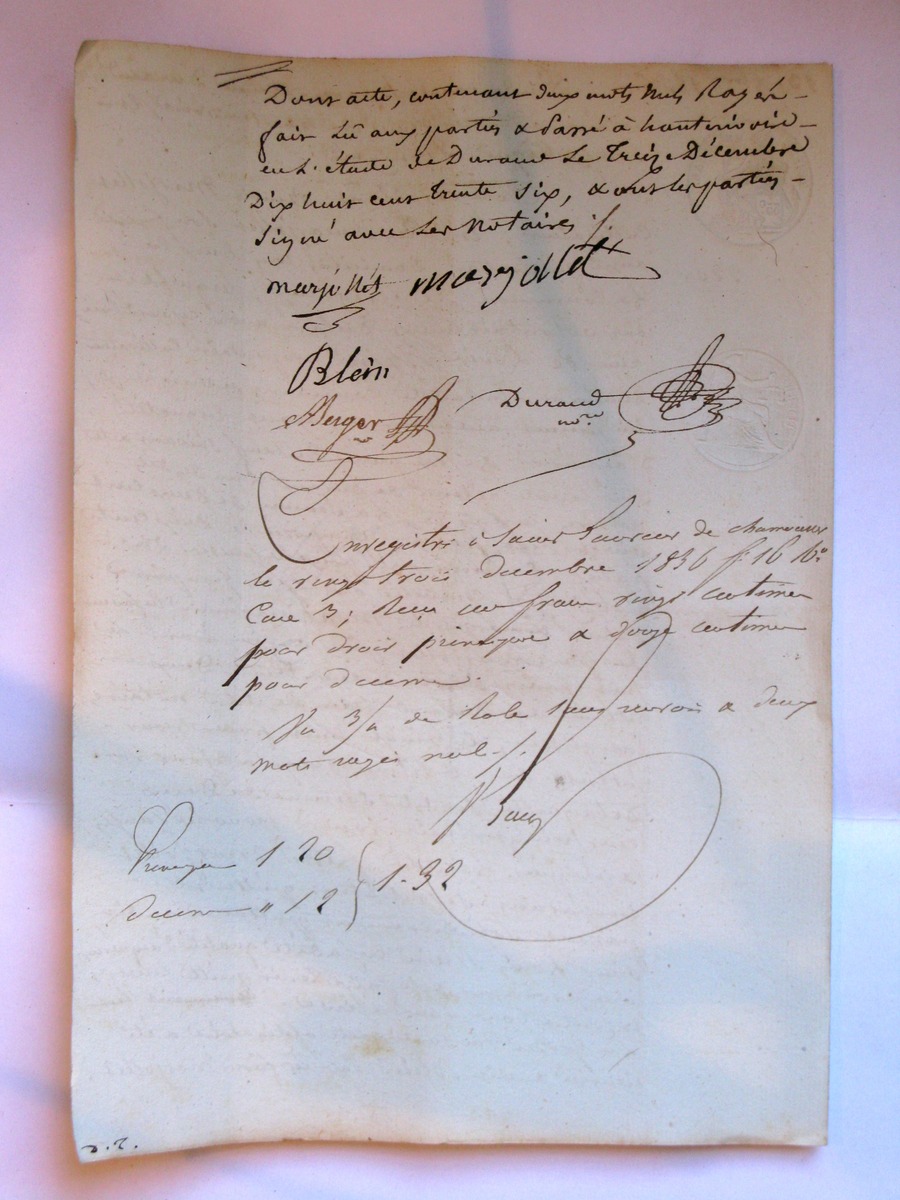 Dont acte, contenant deux mots nuls Rayés
fait Lû aux parties & Passé à hauterivoire
en L'étude de Durand Le Treize Décembre
Dix huit cent trente six, & ont les parties
Signé avec Les Notaires
marjollet marjollet
Blein
Berger
Durand
Enregistré à Saint Laurent de chamousset
le vingt trois décembre 1836 f° 16 v°
Case 3; Reçu un franc vingt centimes
pour droit principal & douze centimes
pour décime.
de Role & deux
mots rayés nuls
Principal 1 20
décime " 12 } 1.32